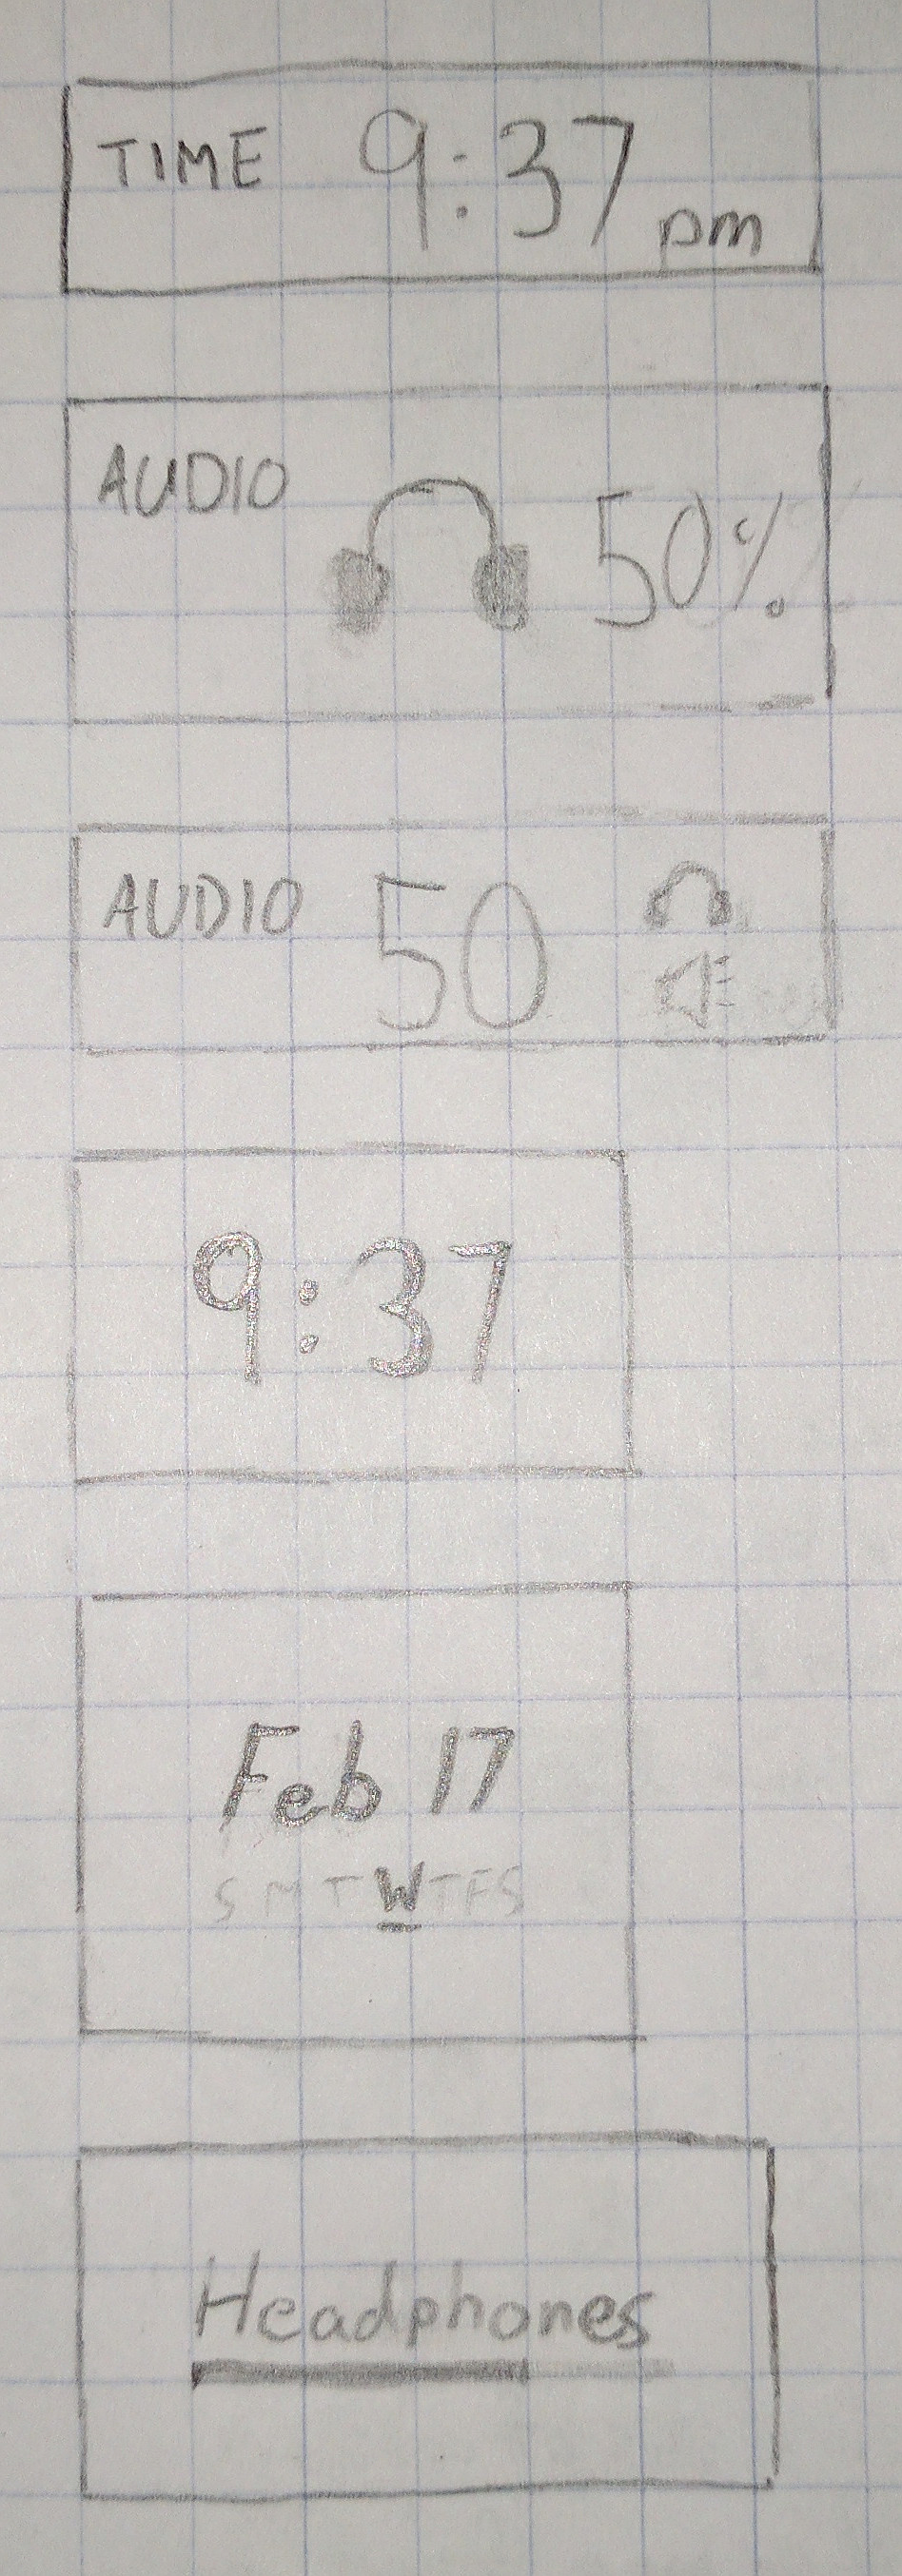 TIME 9:37 pm
AUDIO 50%
AUDIO 50
9:37
Feb 17
S M T W T F S
Headphones